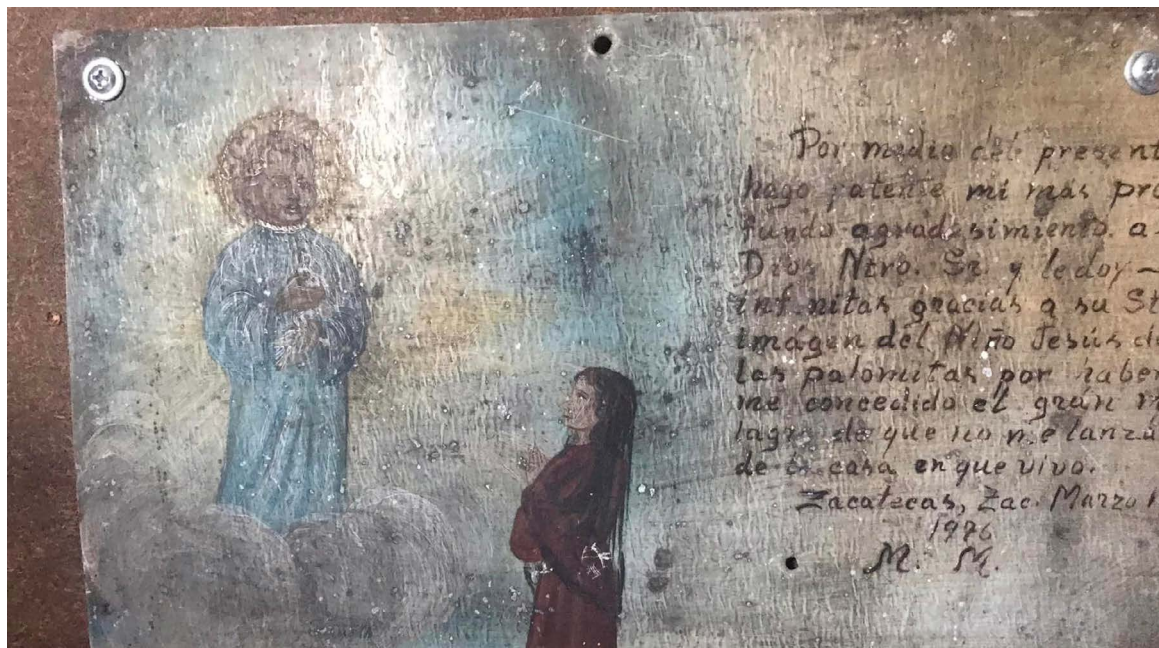 Por medio del present
hago patente mi más pro
fundo agradesimiento. a
Dios Ntro. Sr. y le doy —
infinitas gracias a su St
imágen del Niño Jesús de
las palomitas por haber
me concedido el grán m
lagro de que no me lanzá
de la casa en que vivo.
Zacatecas, Zac. Marzo
1976
M. M.